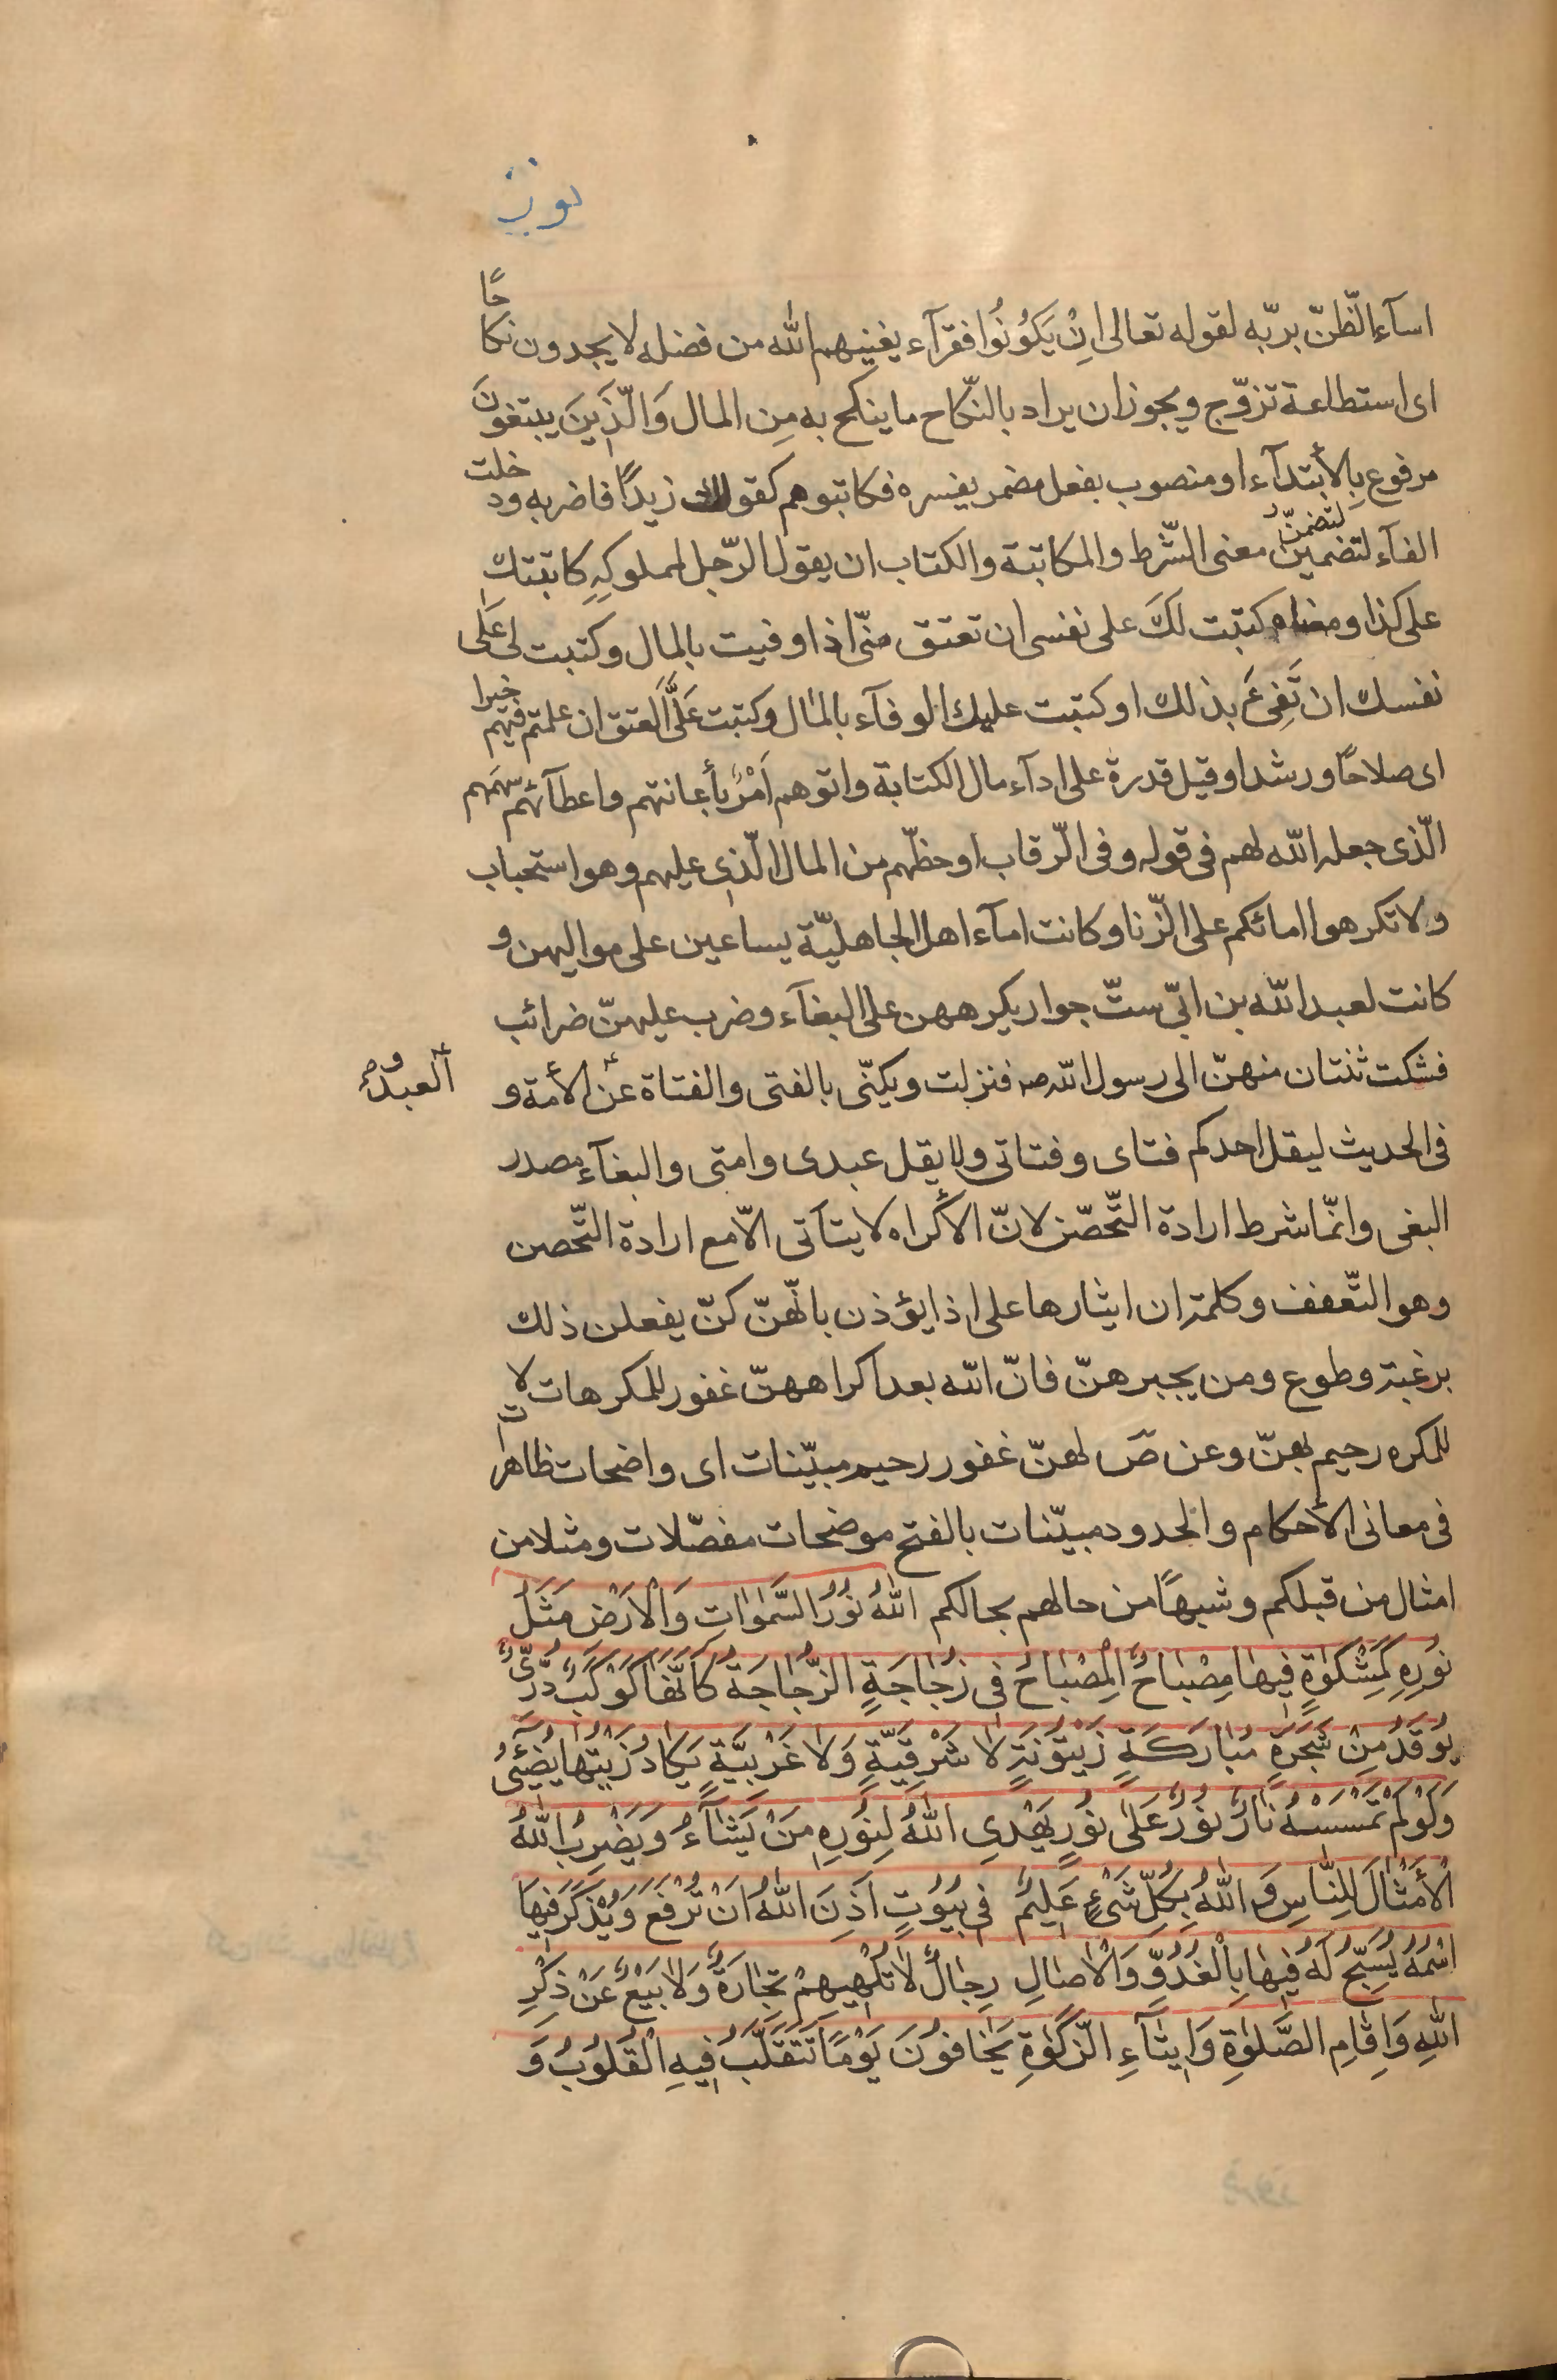 نور
اسآء الظّنّ بربّه لقوله تعالى اِنْ يَكُونُوا فقرآء يغنيهم الله من فضله لا يجدون نكاحًا
اى استطاعة تزوّج ويجوز ان يراد بالنّكاح ما ينكح به مِن المال وَالّذَينَ يبتغونَ
مرفوع بِالأبتدآء او منصوب بفعل مضمر يفسره فكاتبوهم كقولك زيدًا فاضربه ودخلت
الفآء لتضمين لتضمنّ معنى الشّرط والمكاتبة والكتاب ان يقول الرّجل لمملوكِهِ كاتبتك
على كذا ومعناه كتبت لكَ على نفسى ان تعتق منّى اذا وفيت بالمال وكتبت لى عَلَى
نفسك ان تَفِىَ بذلك او كتبت عليك الوفآء بالمال وكتبت عَلَّى العتق ان علمتم فيهم خيرا
اى صلاحًا ورشدا وقيل قدرة على ادآء مال الكتابة واتوهم اَمْرٌ بأعانتهم واعطآئهم سهمَهم
الّذى جعله الله لهم فى قوله وفى الرّقاب او حظّهم من المال الّذى عليهم وهو استحباب
ولا تكرهوا امائكم على الزّنا وكانت امآء اهل الجاهليّة يساعين على مواليهن و
كانت لعبد الله بن ابىّ ستّ جوار يكرههن على البغآء وضرب عليهنّ ضرائب
فشكت ثنتان منهنّ الى رسول الله ص فنزلت ويكنّى بالفتى والفتاة عن الأمة و
العبد و
فى الحديث ليقل احدكم فتاى وفتاتى ولا يقل عبدى وامتى والبغآء مصدر
البغى وانّما شرط ارادة التّحصّن لانّ الأكراه لا يتآتى الاّ مع ارادة التّحصن
وهو التّعفف وكلمة ان ايثارها على اذا يؤذن بانّهنّ كنّ يفعلن ذلك
برغبة وطوع ومن يجبرهنّ فانّ الله بعد اكراههنّ غفور للمكرهات لا
للمكره رحيم بهنّ وعن صَ لهنّ غفور رحيم مبيّنات اى واضحات ظاهرات
فى معانى الأحكام والحدود مبيّنات بالفتح موضحات مفصّلات ومثلا من
امثال من قبلكم وشبهًا من حالهم بحالكم اللهُ نُورُ السَّمٰوٰاتِ وَالْاَرْضِ مَثَلُ
نُورِهِ كَمِشْكٰوةٍ فيهٰا مِصْبٰاحٌ الْمِصْبٰاحُ فى زُجٰاجَةٍ الزُّجٰاجَةُ كَاَنَّهٰا كَوْكَبٌ دُرِّىٌّ
يُوقَدُ مِنْ شَجَرَةٍ مُبٰارَكَةٍ زَيْتُونَةٍ لاٰ شَرْقِيَّةٍ وَلاٰ غَرْبِيَّةٍ يَكٰادُ زَيْتُهٰا يُضِيْئُ
وَلَوْ لَمْ تَمْسَسْهُ نٰارٌ نُورٌ عَلىٰ نُورٍ يَهْدِى اللهُ لِنُورِهِ مَنْ يَشٰآءُ وَيَضْرِبُ اللهُ
الْأَمْثٰالَ لِلنّٰاسِ وَ اللهُ بِكُلِّ شَىْءٍ عَليمٌ فى بُيُوتٍ اَذِنَ اللهُ اَنْ تُرْفَعَ وَيُذْكَرَ فيهَا
اسْمُهُ يُسَبِّحُ لَهُ فيهٰا بِالْغُدُوِّ وَالْاٰصٰالِ رِجٰالٌ لاٰ تُلْهيهِمْ تِجٰارَةٌ وَلاٰ بَيْعٌ عَنْ ذِكْرِ
اللهِ وَاِقٰامِ الصَّلٰوةِ وَايتٰآءِ الزَّكٰوةِ يَخٰافُونَ يَوْمًا تَتَقَلَّبُ فيهِ الْقُلُوبُ وَ